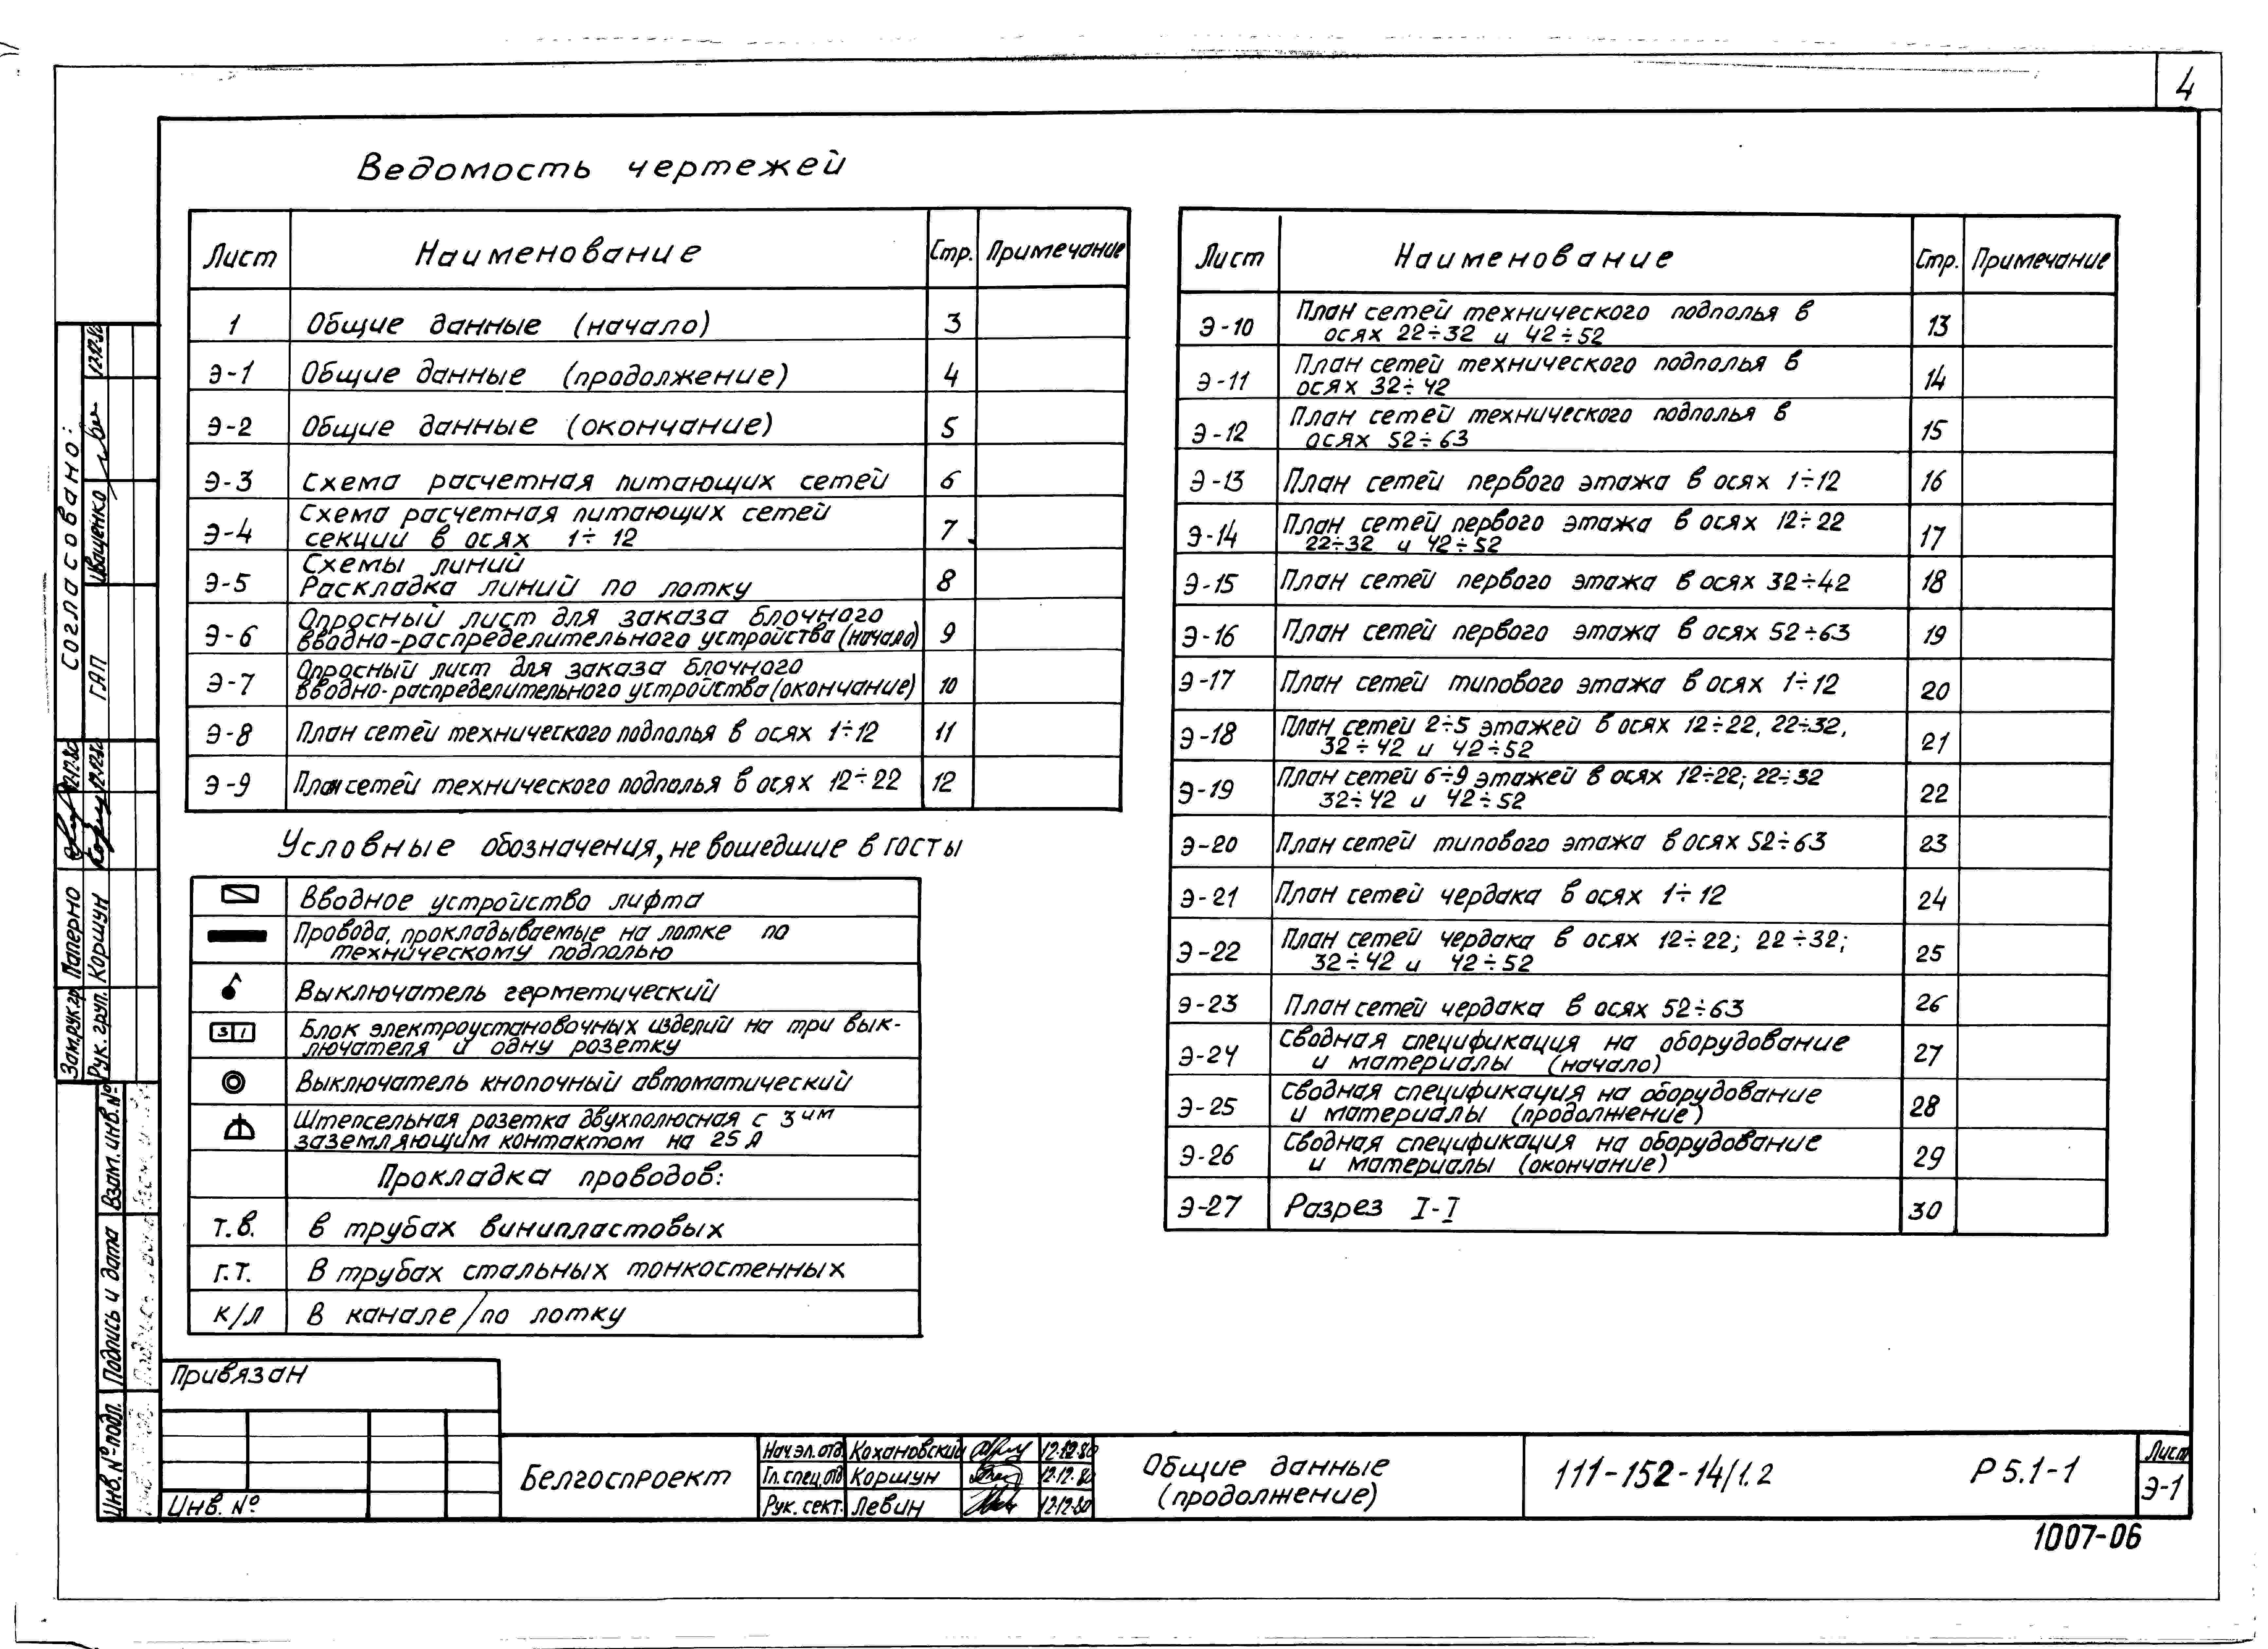 4
Ведомость чертежей
Лист Наименование Стр. Примечание
1 Общие данные (начало) 3
Э-1 Общие данные (продолжение) 4
Э-2 Общие данные (окончание) 5
Э-3 Схема расчетная питающих сетей 6
Э-4 Схема расчетная питающих сетей
секции в осях 1÷12 7
Э-5 Схемы линий
Раскладка линий по лотку 8
Э-6 Опросный лист для заказа блочного
вводно-распределительного устройства (начало) 9
Э-7 Опросный лист для заказа блочного
вводно-распределительного устройства (окончание) 10
Э-8 План сетей технического подполья в осях 1÷12 11
Э-9 План сетей технического подполья в осях 12÷22 12
Условные обозначения, не вошедшие в госты
Вводное устройство лифта
Провода, прокладываемые на лотке по
техническому подполью
Выключатель герметический
3 1 Блок электроустановочных изделий на три вык-
лючателя и одну розетку
Выключатель кнопочный автоматический
Штепсельная розетка двухполюсная с 3им
заземляющим контактом на 25 А
Прокладка проводов:
т.в. в трубах винипластовых
г.т. В трубах стальных тонкостенных
к/л В канале/по лотку
Лист Наименование Стр. Примечание
Э-10 План сетей технического подполья в
осях 22÷32 и 42÷52 13
Э-11 План сетей технического подполья в
осях 32÷42 14
Э-12 План сетей технического подполья в
осях 52÷63 15
Э-13 План сетей первого этажа в осях 1÷12 16
Э-14 План сетей первого этажа в осях 12÷22
22÷32 и 42÷52 17
Э-15 План сетей первого этажа в осях 32÷42 18
Э-16 План сетей первого этажа в осях 52÷63 19
Э-17 План сетей типового этажа в осях 1÷12 20
Э-18 План сетей 2÷5 этажей в осях 12÷22, 22÷32,
32÷42 и 42÷52 21
Э-19 План сетей 6÷9 этажей в осях 12÷22; 22÷32
32÷42 и 42÷52 22
Э-20 План сетей типового этажа в осях 52÷63 23
Э-21 План сетей чердака в осях 1÷12 24
Э-22 План сетей чердака в осях 12÷22; 22÷32;
32÷42 и 42÷52 25
Э-23 План сетей чердака в осях 52÷63 26
Э-24 Сводная спецификация на оборудование
и материалы (начало) 27
Э-25 Сводная спецификация на оборудование
и материалы (продолжение) 28
Э-26 Сводная спецификация на оборудование
и материалы (окончание) 29
Э-27 Разрез I-I 30
Согласовано:
ГАП Иващенко 12.12.80
Зам.рук.гр. Паперно 12.12.80
Рук. груп. Коршун 12.12.80
Взам. инв. №
Подпись и дата
Инв. № подл.
Привязан
Инв. №
Белгоспроект
Нач эл. отд. Кохановский 12.12.80
Гл. спец. отд Коршун 12.12.80
Рук. сект. Левин 12.12.80
Общие данные
(продолжение)
111-152-14/1.2
Р 5.1-1
Лист
Э-1
1007-06